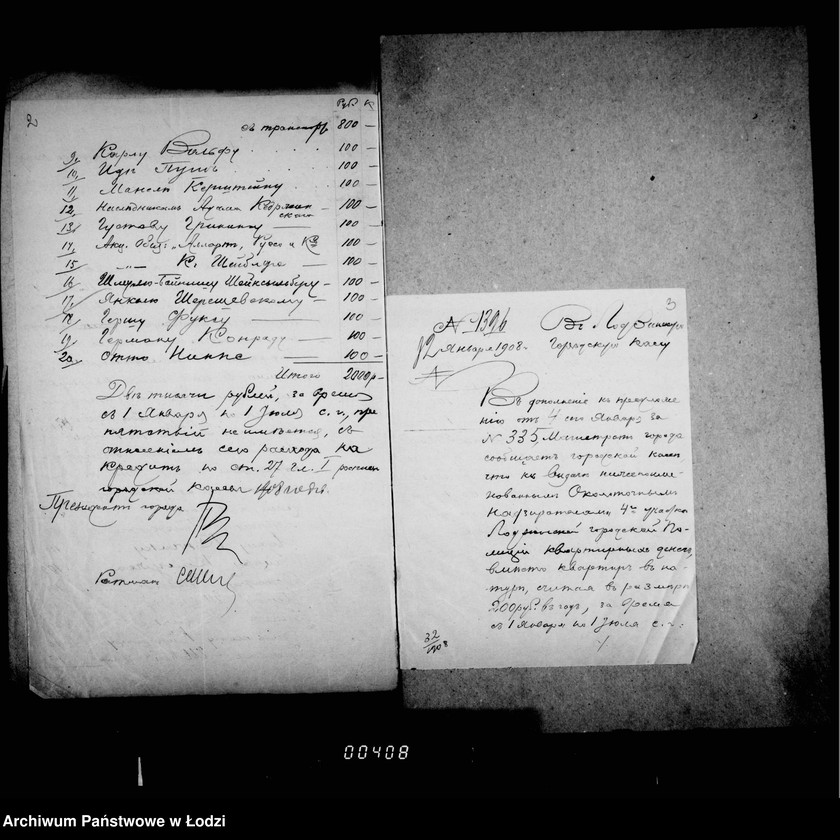 2
Руб. К
съ транспорта 800 —
9, Карлу Вольфу 100 —
10, Иды 100 —
11, 100 —
12, Наслѣдникамъ Адама 100 —
13, Густову 100 —
14, Акц. Общ. „Аллартъ, Руссо и К° 100 —
15, „ — К. Шейблера — 100 —
16, 100 —
17, Янкелю Шерешевскому — 100 —
18, Гершу Фуксу — 100 —
19, Герману Конраду — 100 —
20, Отто — 100 —
Итого 2000 р —
Двѣ тысячи рублей, за время
съ 1 Января по 1 Іюля с. г., пре
пятствій не имѣется, съ
отнесеніемъ сего расхода на
кредитъ по ст. 27 гл. I росписи
городской кассы 1908 года.
Президентъ города
Ратманъ
3
№ 1396
Въ Лодзинскую
12 Января 1908 г.
Городскую Кассу
Въ дополненіе къ предложе
нію отъ 4 сего Января за
№ 335, Магистратъ города
сообщаетъ городской кассѣ
что къ выдачѣ нижепоиме-
нованнымъ Околоточнымъ
Надзирателямъ 4го участка
Лодзинской городской По-
лиціи квартирныхъ денегъ,
вмѣсто квартиръ въ на-
турѣ, считая въ размѣрѣ
200 руб. въ годъ, за время
съ 1 Января по 1 Іюля с. г.:
32
1908
00408
Archiwum Państwowe w Łodzi